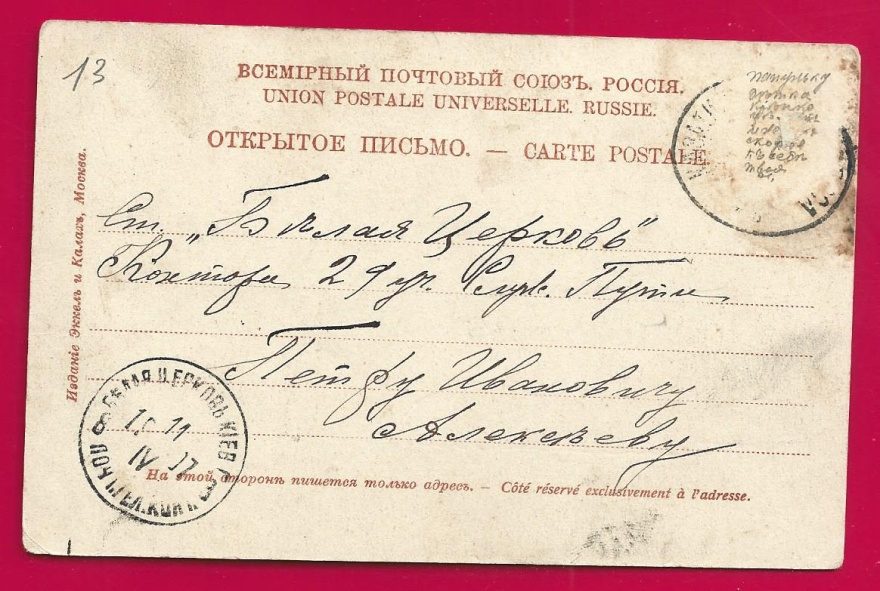 13
ВСЕМІРНЫЙ ПОЧТОВЫЙ СОЮЗЪ. РОССІЯ.
UNION POSTALE UNIVERSELLE. RUSSIE.
ОТКРЫТОЕ ПИСЬМО. — CARTE POSTALE
Изданіе Эккель и Калахъ, Москва.
Ст. „Бѣлая Церковь“
Контора 29 уч. Служ. Пути
Петру Ивановичу
Алексѣеву
БѢЛАЯ ЦЕРКОВЬ КІЕВ
IV
На этой сторонѣ пишется только адресъ. — Côté réservé exclusivement à l'adresse.